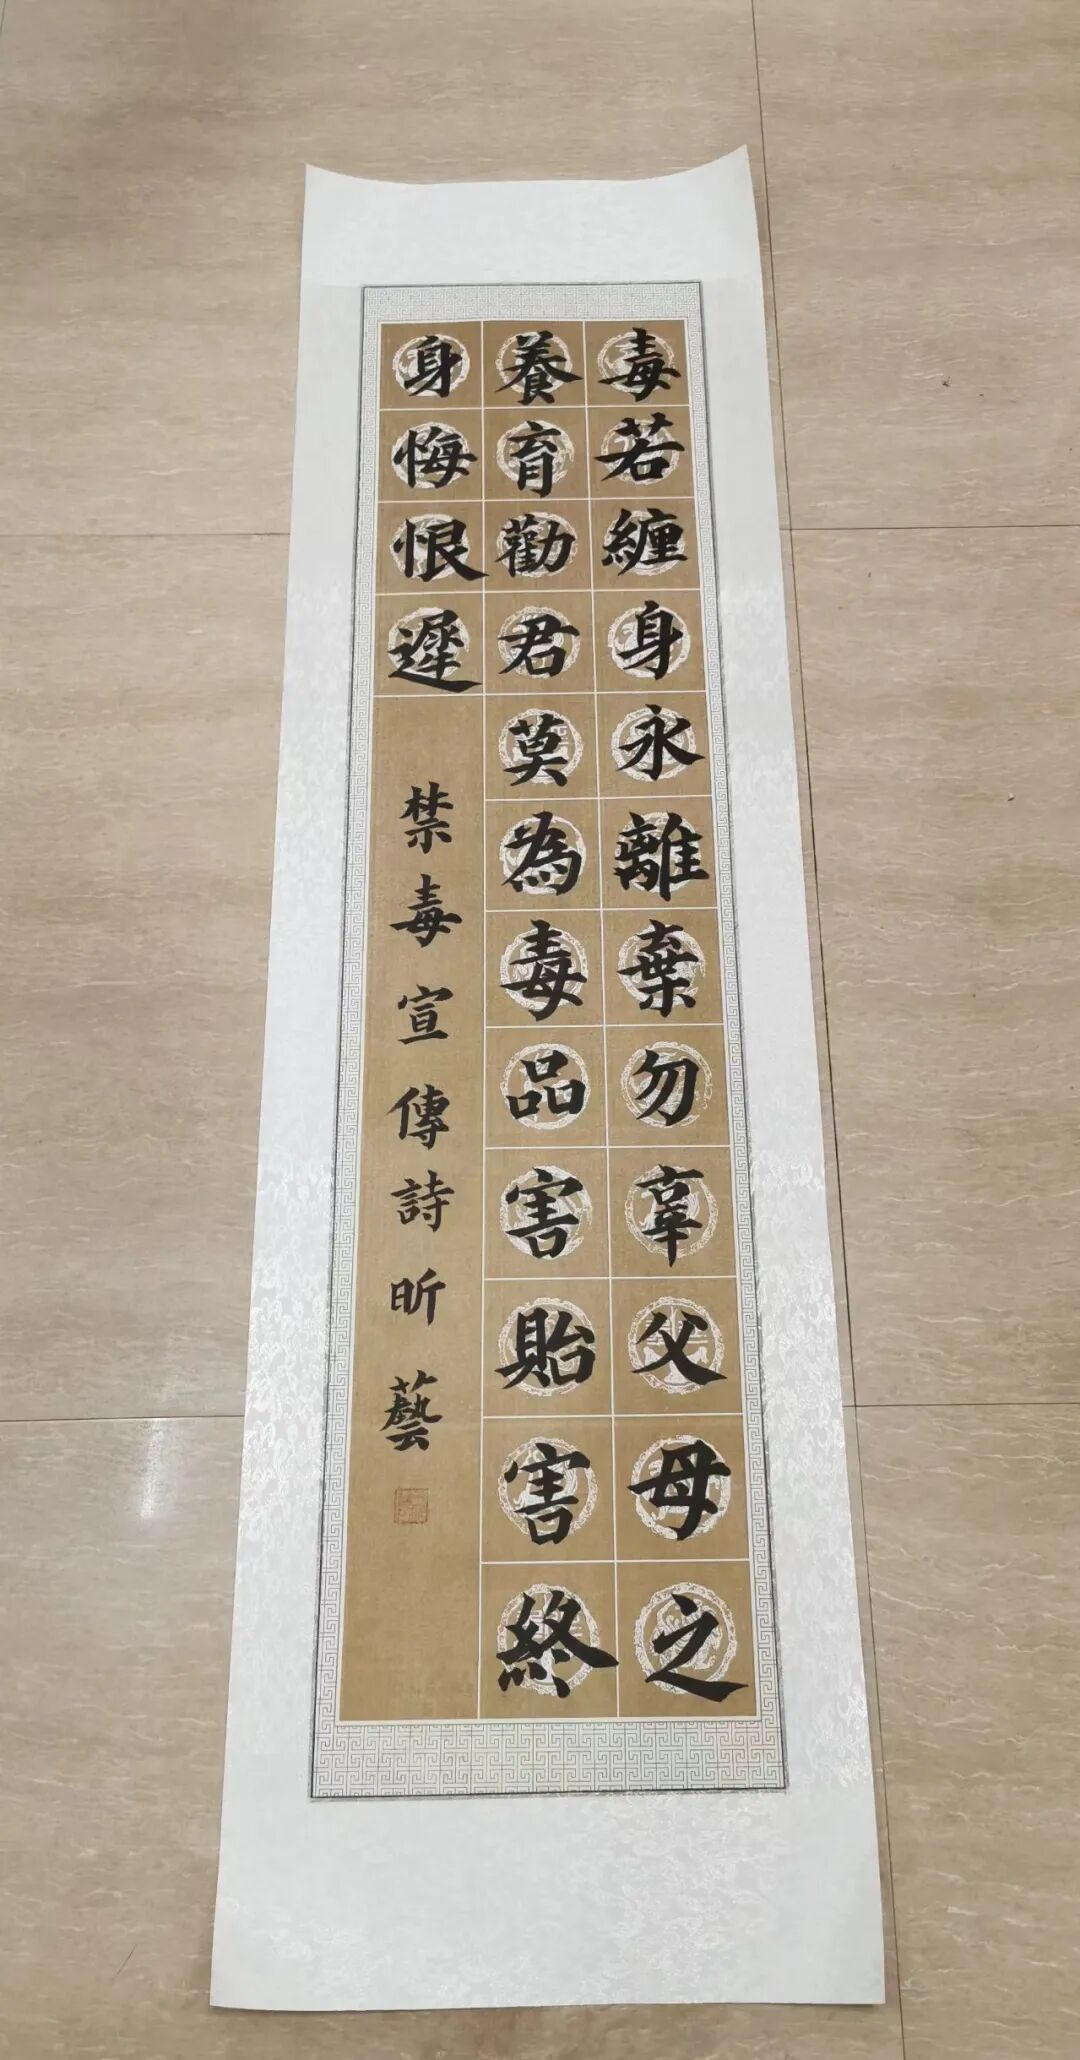 毒若纏身永離棄勿辜父母之
養育勸君莫為毒品害貽害終
身悔恨遲
禁毒宣傳詩昕藝